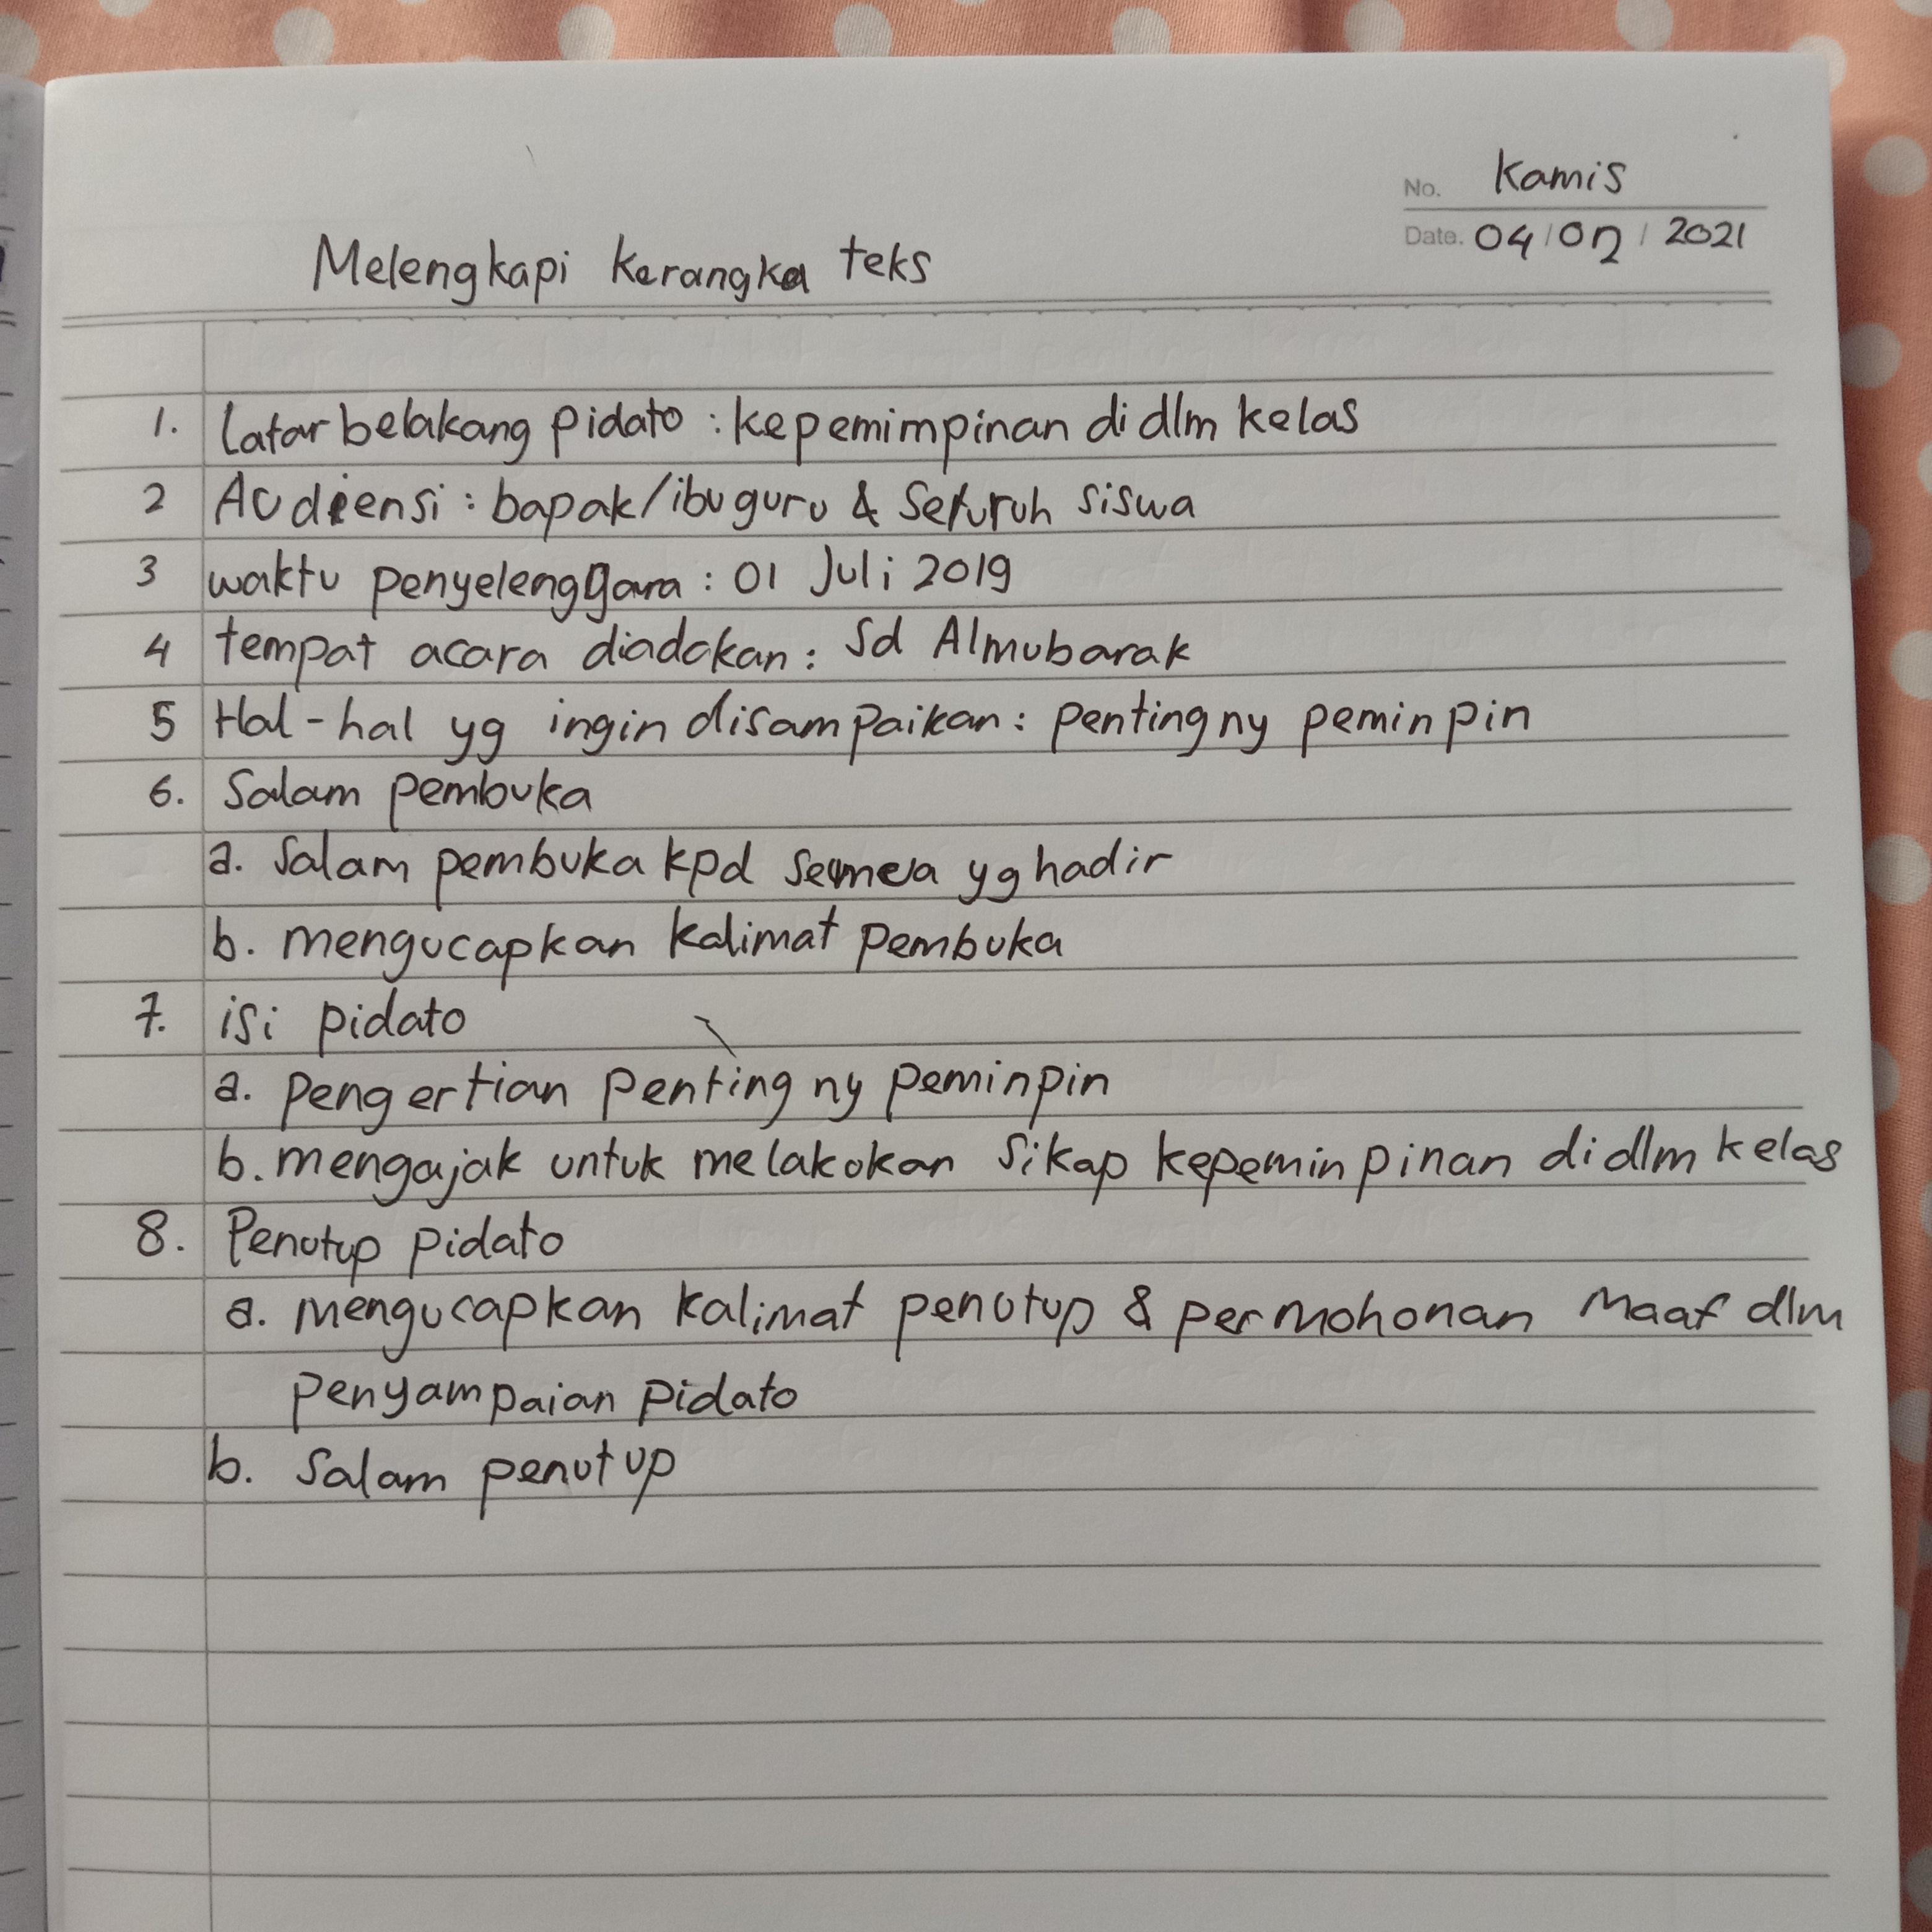 No. Kamis
Date. 04/02/2021
Melengkapi kerangka teks
1. Latar belakang pidato : kepemimpinan di dlm kelas
2 Audiensi : bapak/ibu guru & Seluruh siswa
3 waktu penyelenggara : 01 Juli 2019
4 tempat acara diadakan : Sd Almubarak
5 Hal-hal yg ingin disampaikan : pentingny peminpin
6. Salam pembuka
a. Salam pembuka kpd semea yg hadir
b. mengucapkan kalimat pembuka
7. isi pidato
a. pengertian pentingny peminpin
b. mengajak untuk melakokan Sikap kepeminpinan di dlm kelas
8. Penutup pidato
a. mengucapkan kalimat penutup & permohonan Maaf dlm
penyampaian pidato
b. Salam penutup